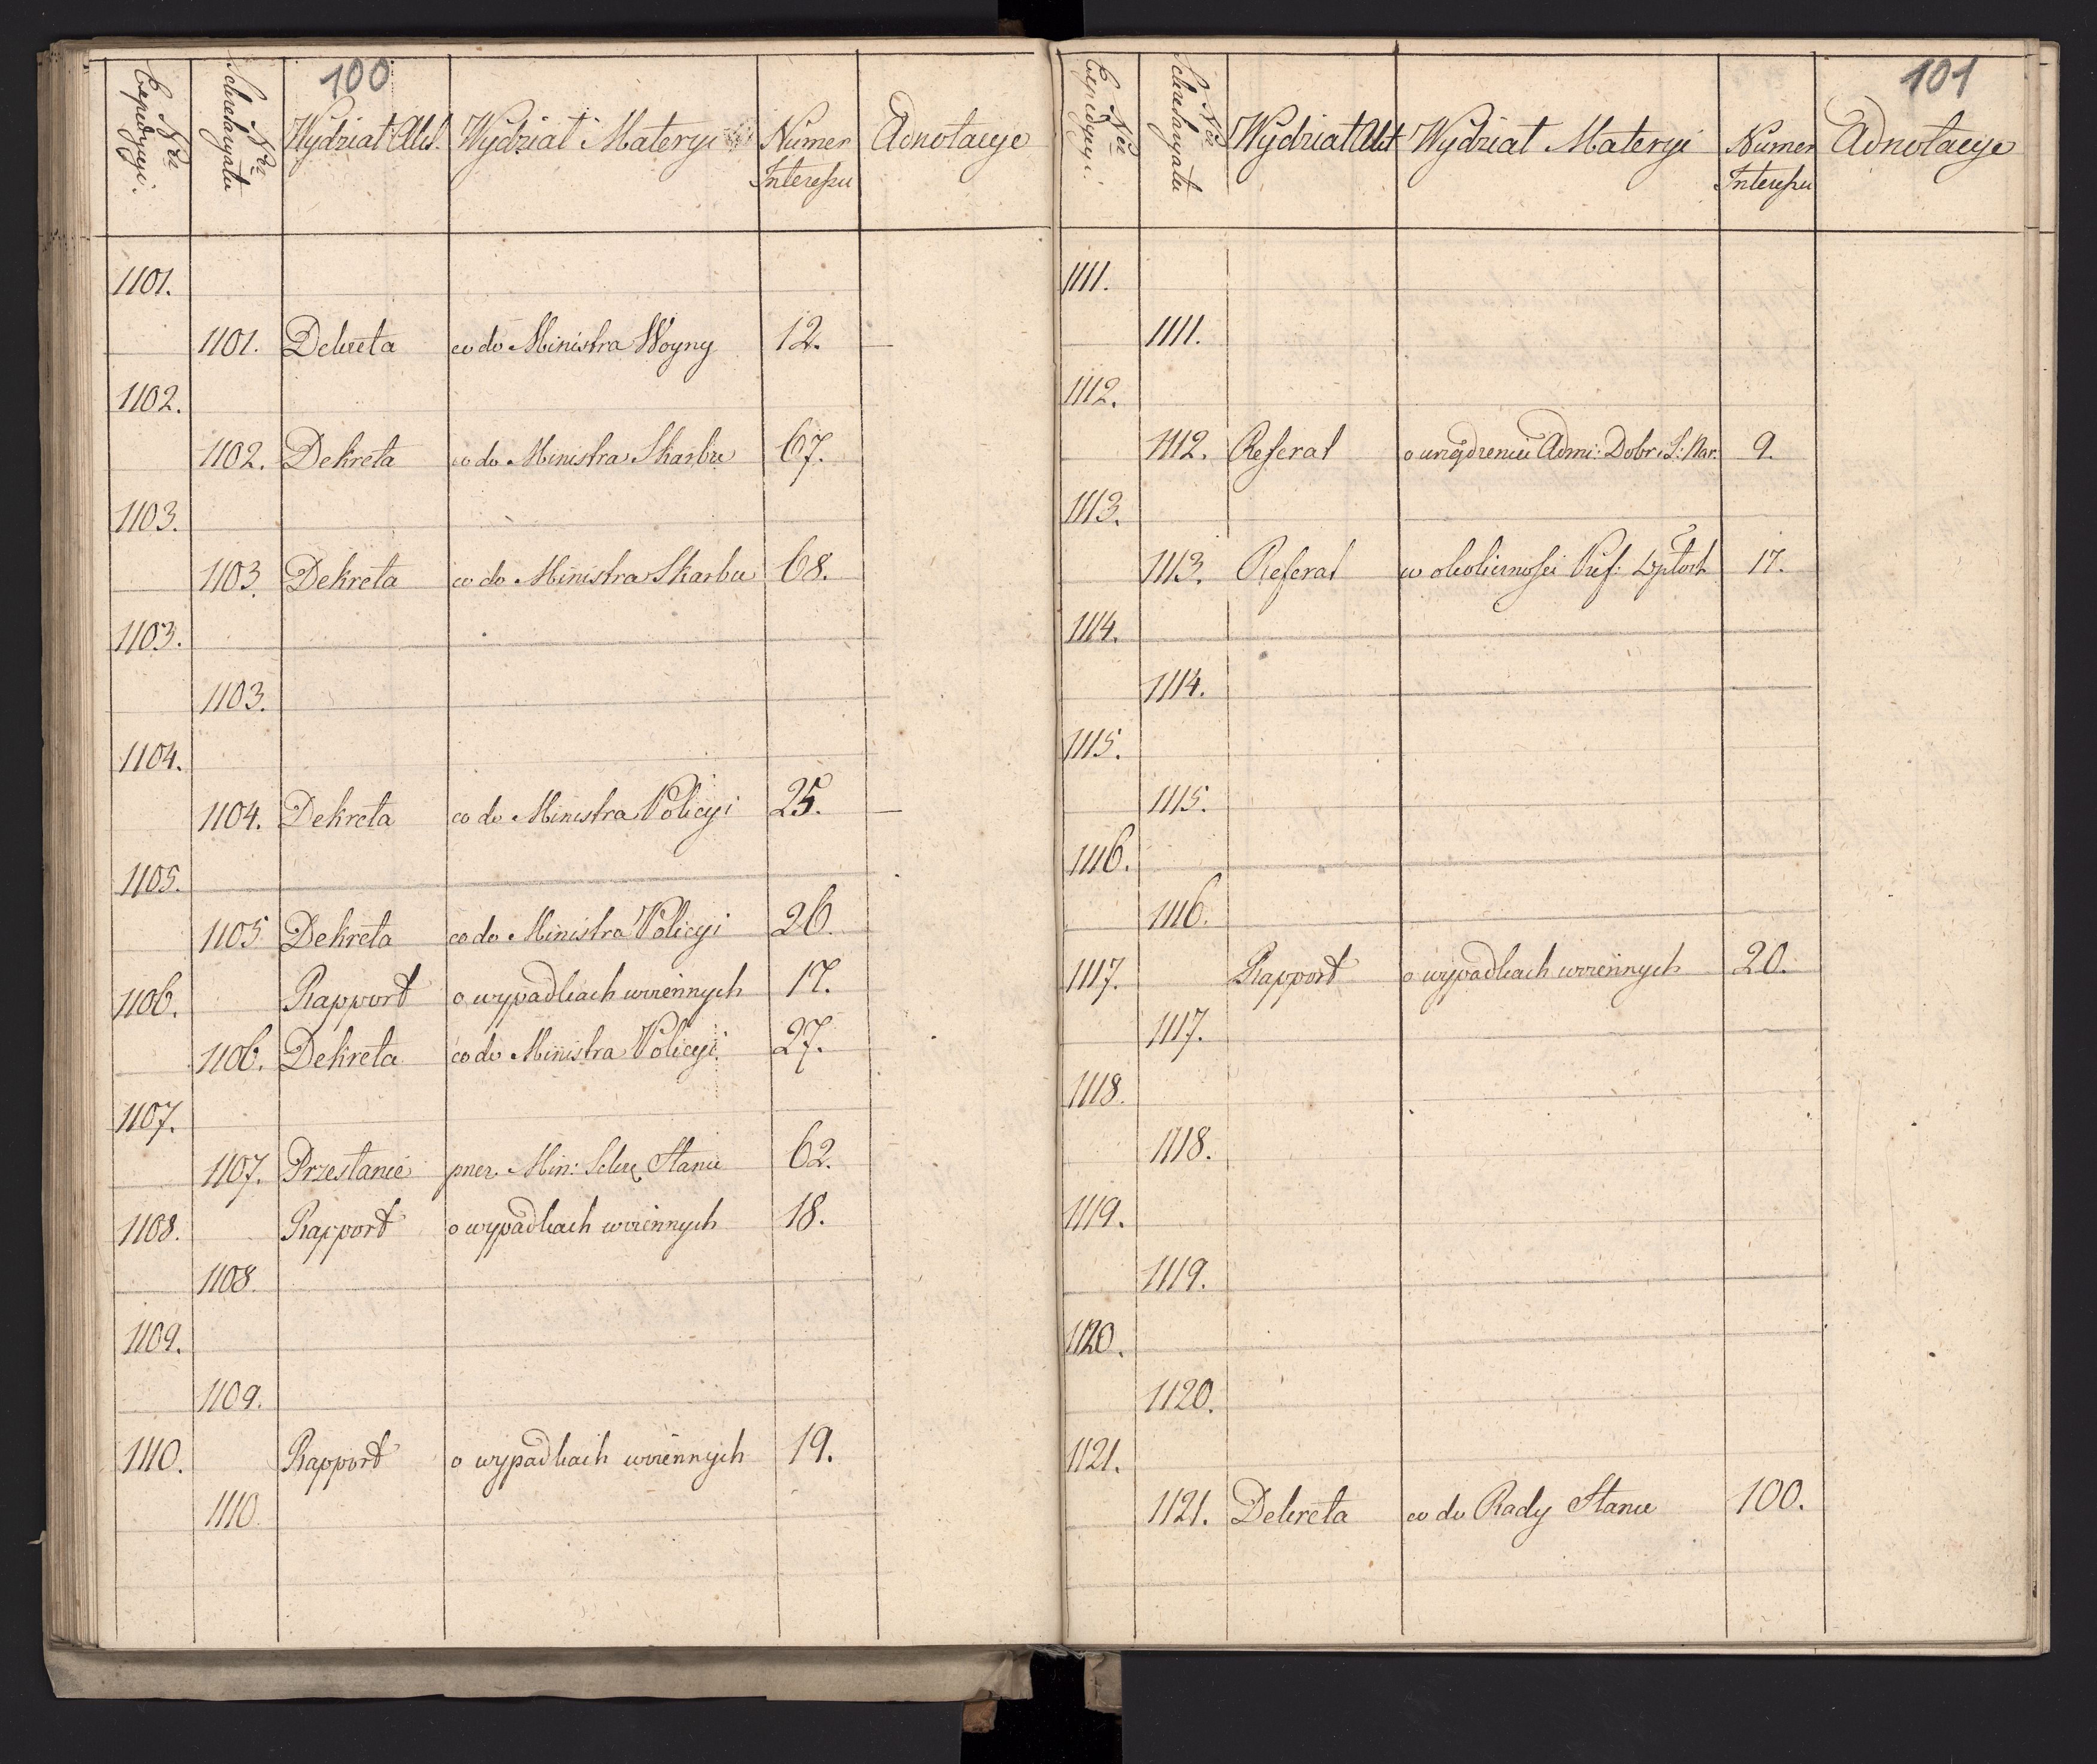 100
Nro Expedycyi. Nro Sekretaryatu Wydział Akt. Wydział Materyi Numer Interessu Adnotacye
1101.
1101. Dekreta co do Ministra Woyny 12. —
1102.
1102. Dekreta co do Ministra Skarbu 67.
1103.
1103. Dekreta co do Ministra Skarbu 68.
1103.
1103.
1104.
1104. Dekreta co do Ministra Policyi 25. —
1105.
1105 Dekreta co do Ministra Policyi 26.
1106. Rapport o wypadkach woiennych 17.
1106. Dekreta co do Ministra Policyi 27.
1107.
1107. Przesłanie przez Min: Sekr. Stanu 62.
1108. Rapport o wypadkach woiennych 18.
1108.
1109.
1109.
1110. Rapport o wypadkach woiennych 19.
1110
101
Nro Expedycyi. Nro Sekretaryatu Wydział Akt Wydział Materyi Numer Interessu Adnotacye
1111.
1111.
1112.
1112. Referat o urządzeniu Admi: Dobr i L: Nar. 9.
1113.
1113. Referat w okoliczności Pref: 17.
1114.
1114.
1115.
1115.
1116.
1116.
1117. Rapport o wypadkach woiennych 20.
1117.
1118.
1118.
1119.
1119.
1120.
1120.
1121.
1121. Dekreta co do Rady Stanu 100.